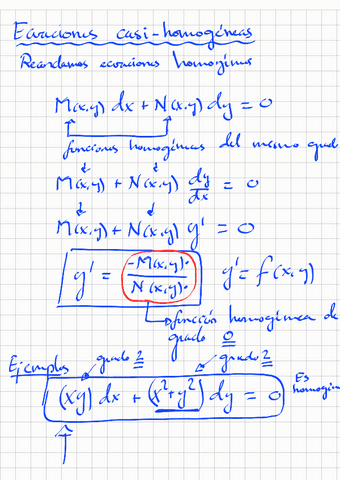 Ecuaciones casi-homogéneas
Recordamos ecuaciones homogéneas
M(x,y) dx + N(x,y) dy = 0
funciones homogéneas del mismo grado
M(x,y) + N(x,y) dy/dx = 0
M(x,y) + N(x,y) y' = 0
y' = -M(x,y)/N(x,y) y' = f(x,y)
función homogénea de
grado 0
Ejemplos grado 2 grado 2
(xy) dx + (x²+y²) dy = 0 Es